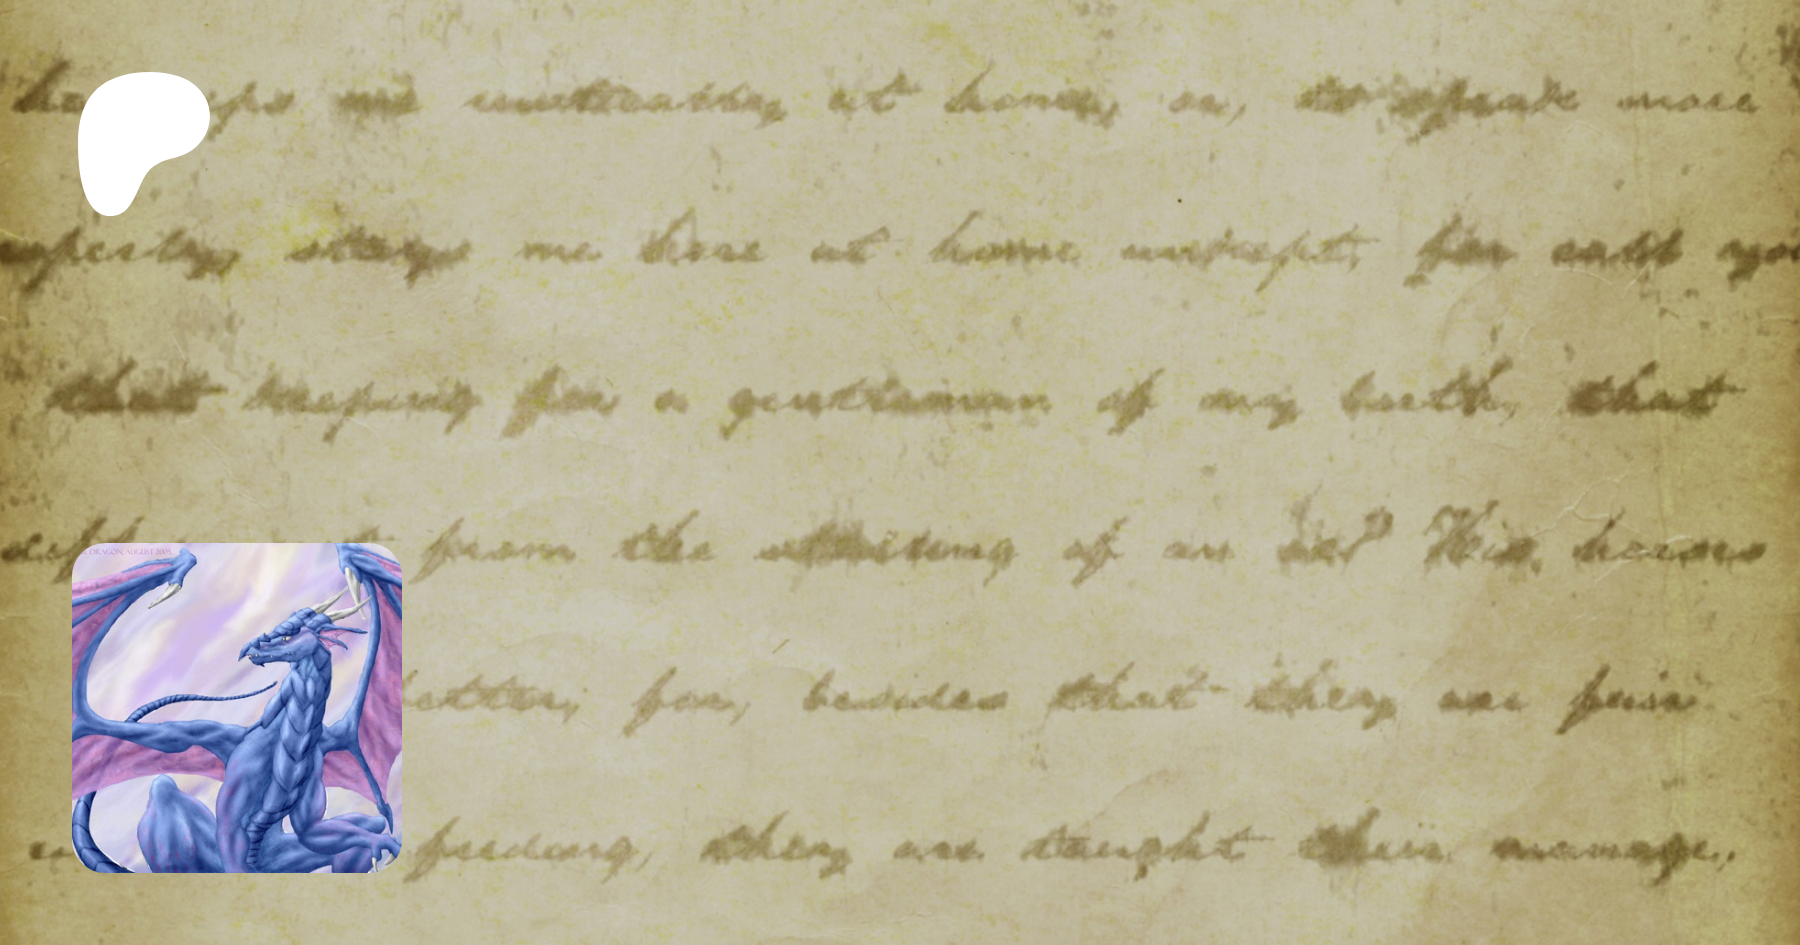 me rustically at home, or, to speak more
stays me here at home unkept, for call you
that keeping for a gentleman of my birth, that
from the stalling of an ox? His horses
better, for, besides that they are fair
feeding, they are taught their manage,
DRAGON, AUGUST 2005